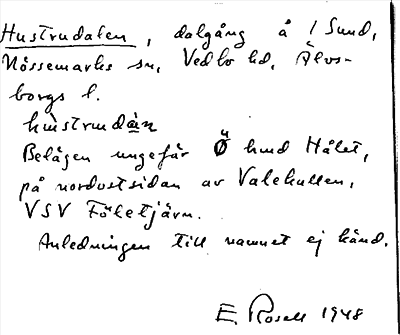 Hustrudalen, dalgång å 1 Sund,
Nössemarks sn, Vedbo hd, Älvs-
borgs l.
hùstrudàn
Belägen ungefär Ö hmd Hålet,
på nordvestsidan av Valekullen,
VSV Föletjärn.
Anledningen till namnet ej känd.
E. Rosell 1948